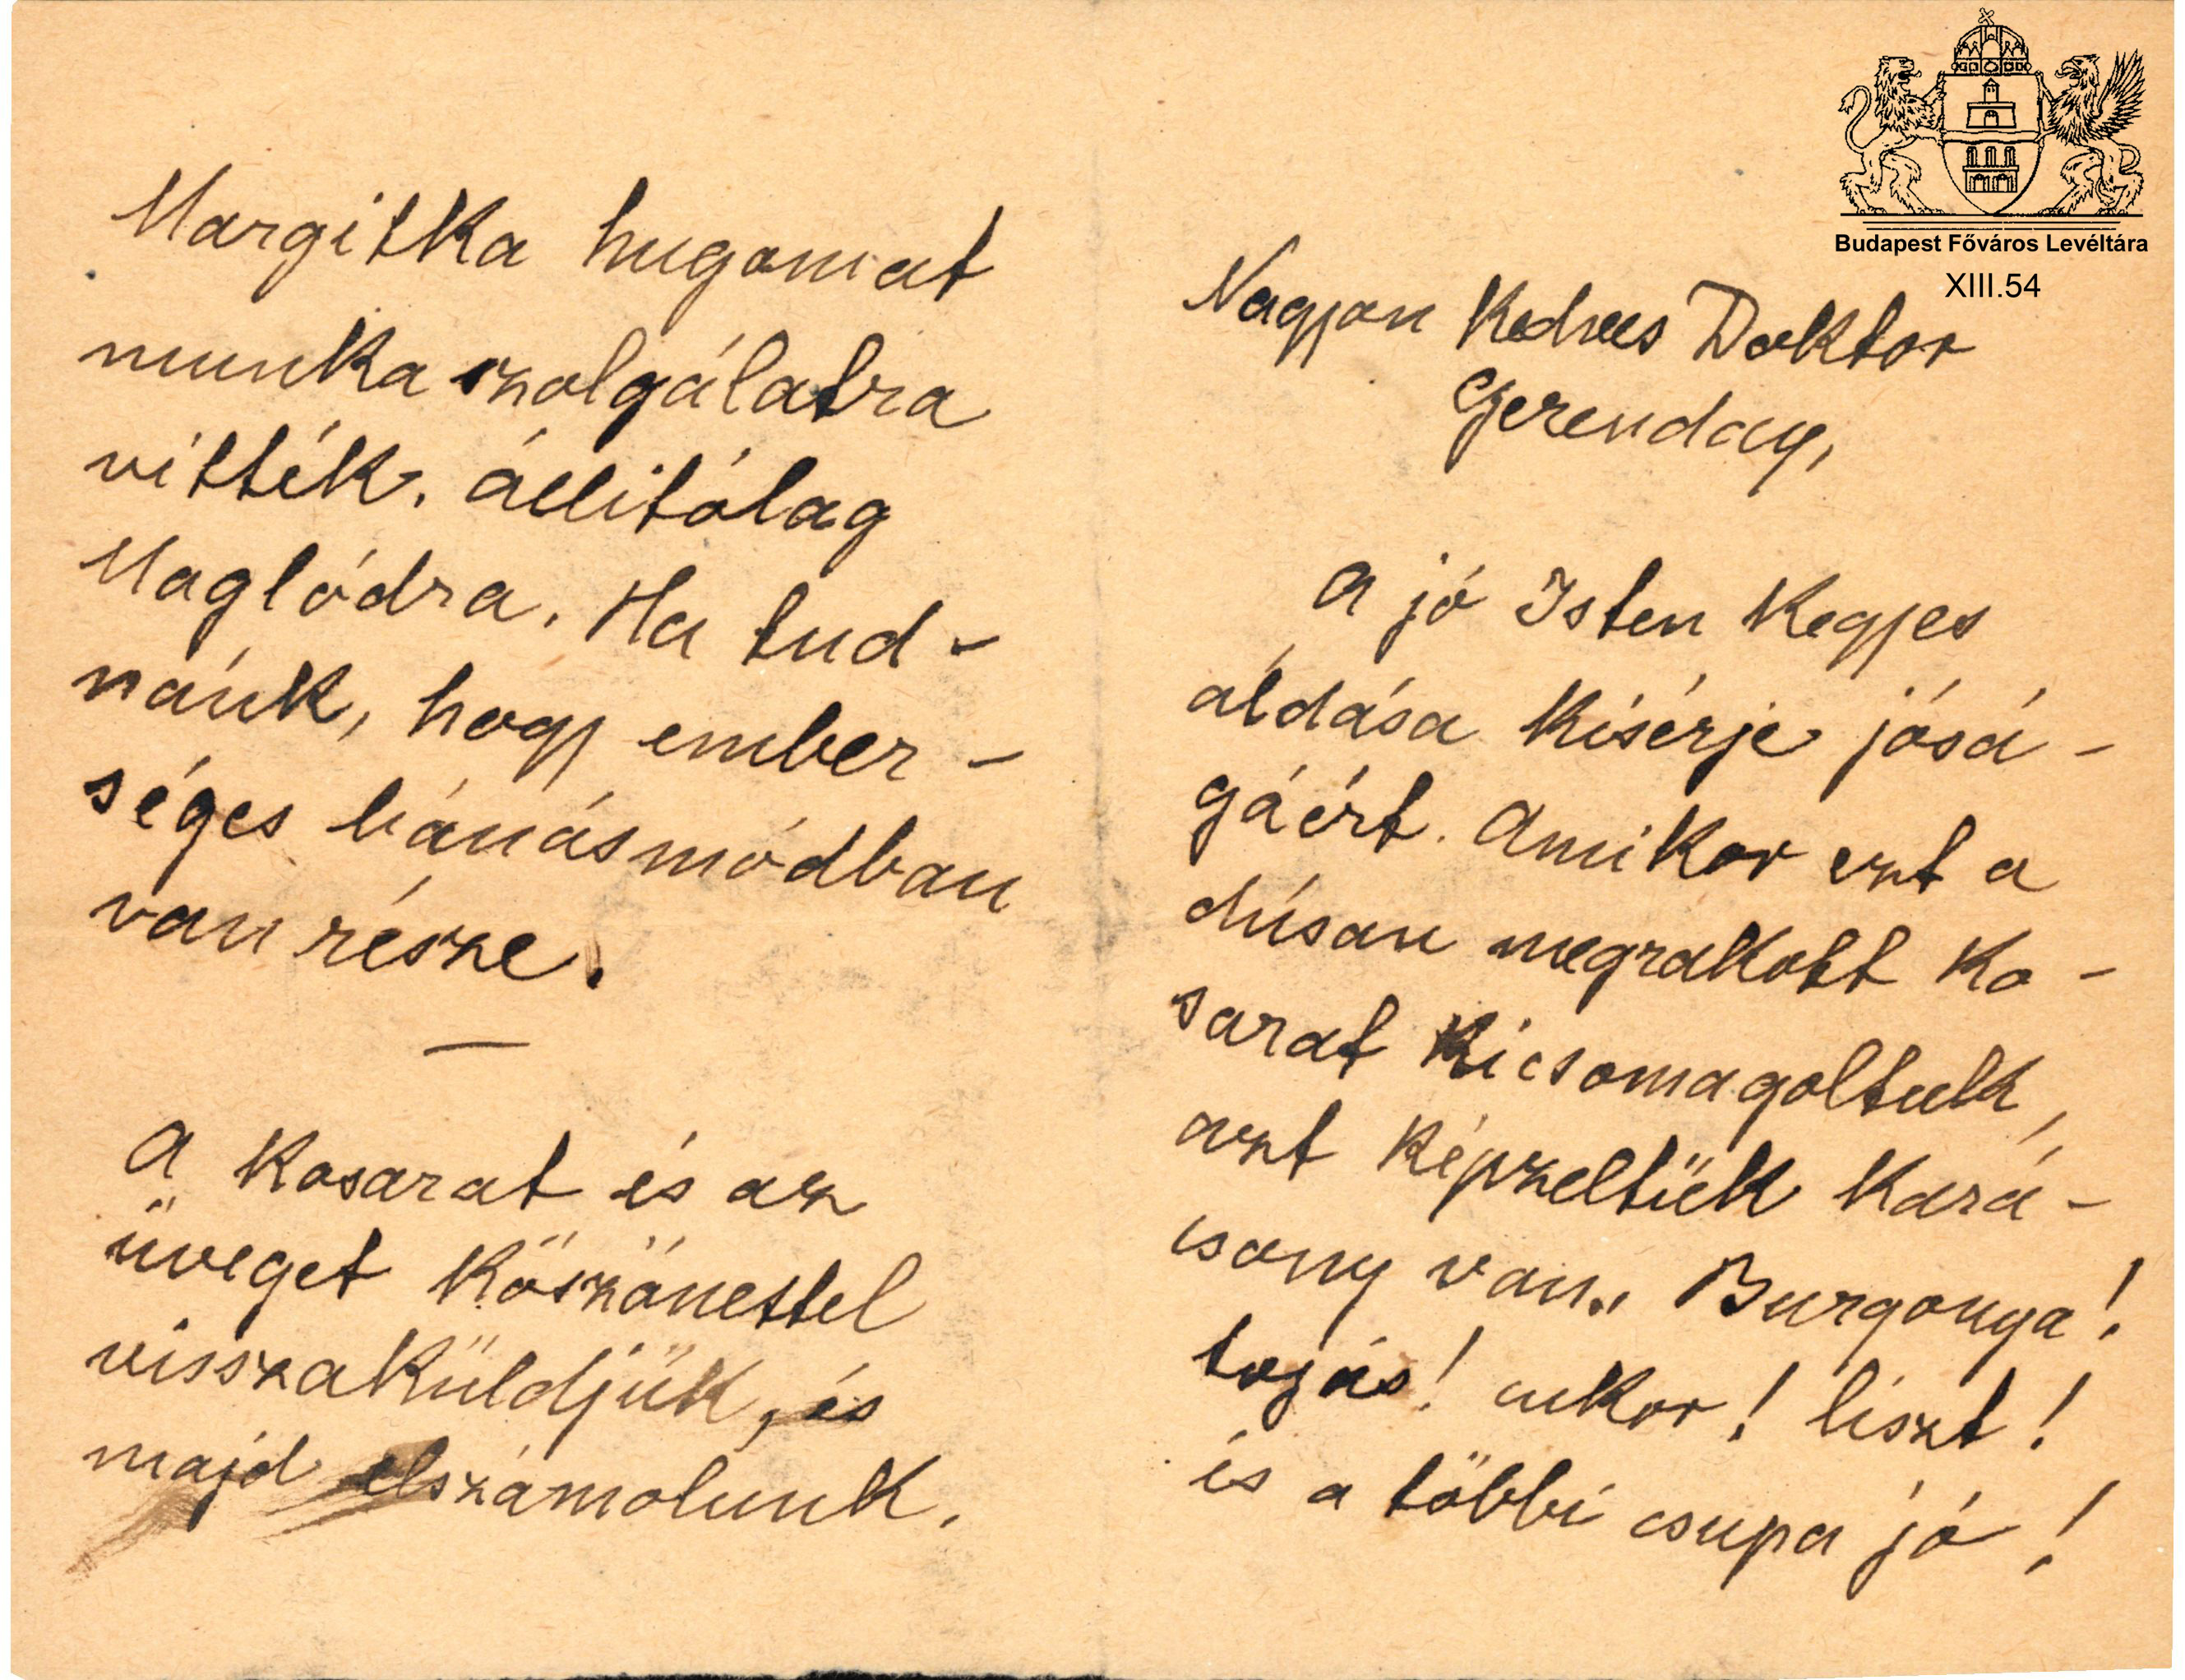 Margitka hugomat
munkaszolgálatra
vitték. állitólag
Maglódra. Ha tud-
nánk, hogy ember-
séges bánásmódban
van része.
A kosarat és az
üveget köszönettel
visszaküldjük, és
majd elszámolunk.
Budapest Főváros Levéltára
XIII.54
Nagyon Kedves Doktor
Gerenday,
A jó Isten kegyes
áldása kisérje jósá-
gáért. Amikor ezt a
dúsan megrakott ko-
sarat kicsomagoltuk,
azt képzeltük kará-
csony van. Burgonya!
tojás! cukor! liszt!
és a többi csupa jó!